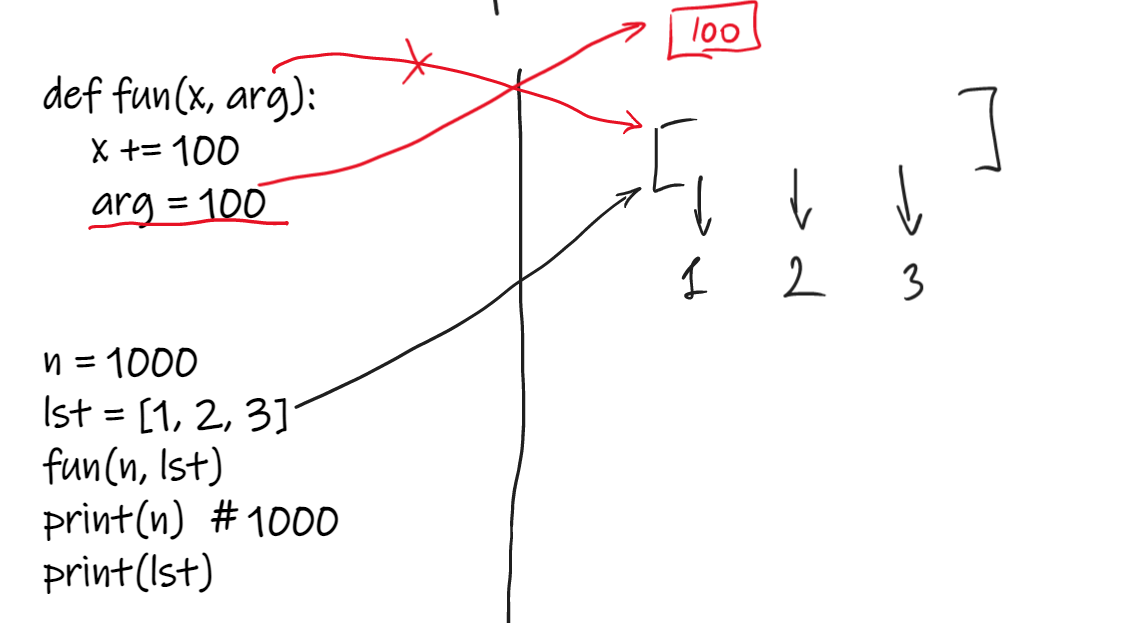 100
def fun(x, arg):
x += 100
arg = 100
[ ]
1 2 3
n = 1000
lst = [1, 2, 3]
fun(n, lst)
print(n) # 1000
print(lst)